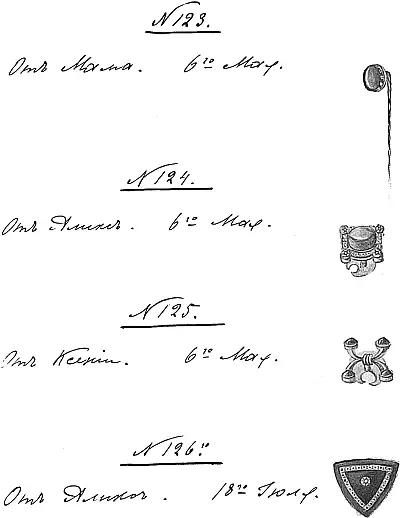 N 123.
Отъ Мама. 6го Мая.
N 124.
Отъ Аликсъ. 6го Мая.
N 125.
Отъ Ксеніи. 6го Мая.
N 126.
Отъ Аликсъ. 18го Іюля.